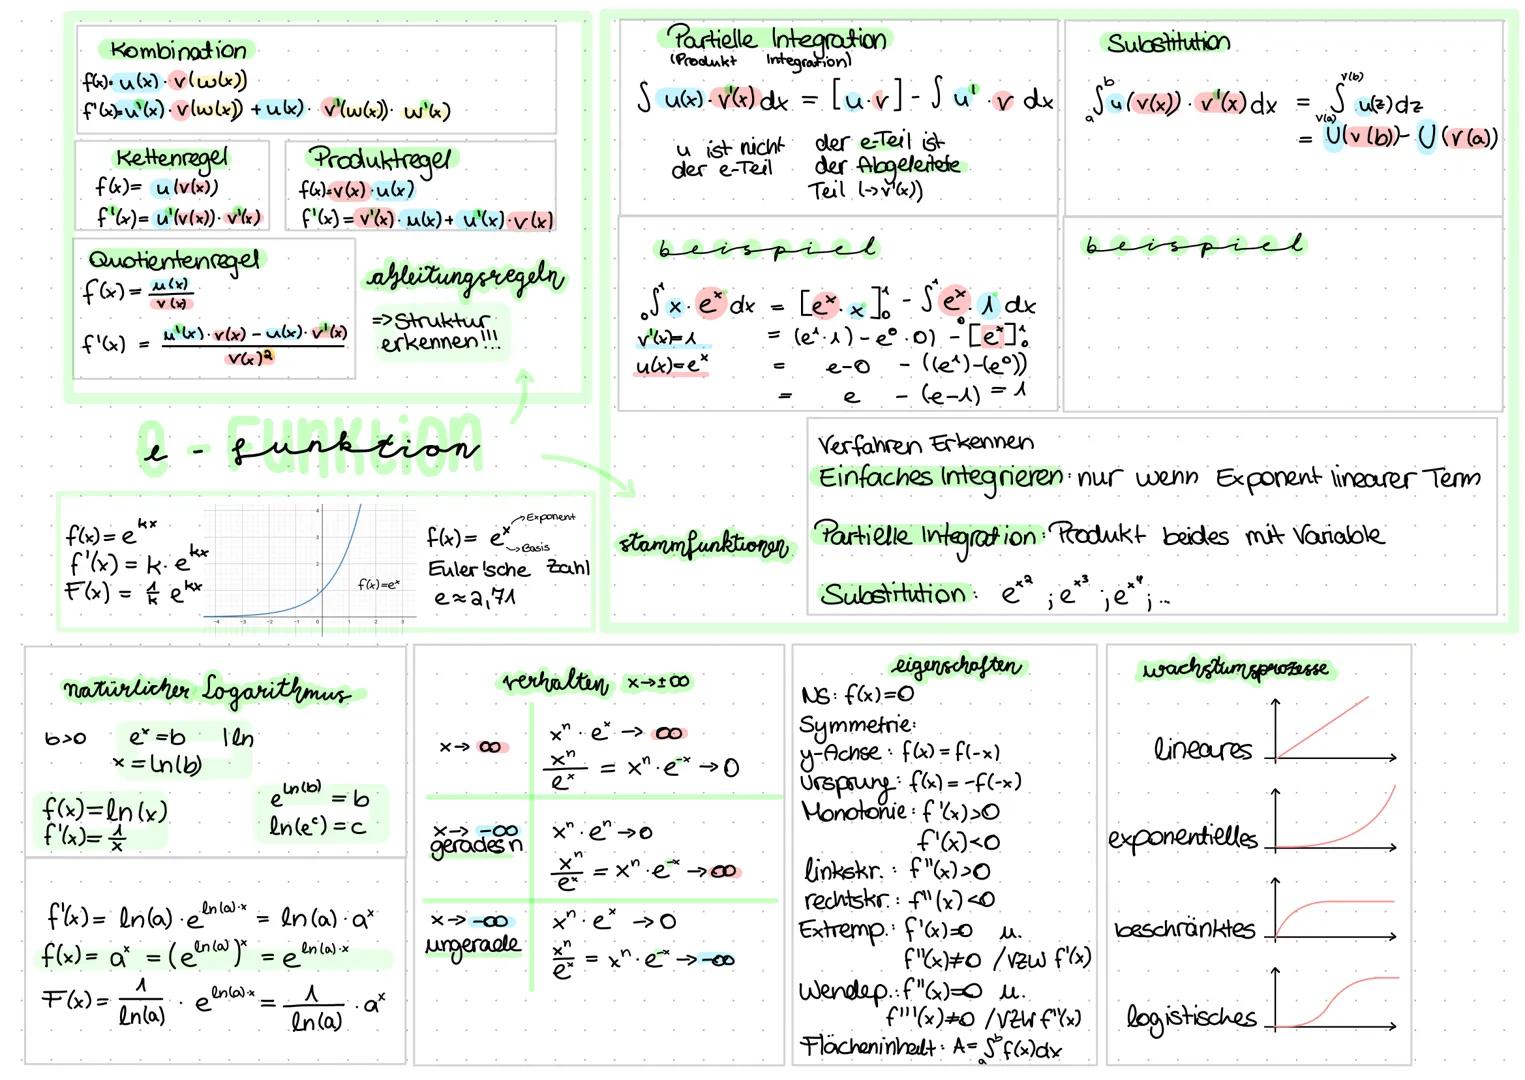 Kombination
f(x)= u(x) · v(w(x))
f'(x)=u'(x) · v(w(x)) + u(x) · v'(w(x)) · w'(x)
Kettenregel
f(x)= u(v(x))
f'(x)= u'(v(x)) · v'(x)
Produktregel
f(x)=v(x)·u(x)
f'(x)= v'(x) · u(x) + u'(x) · v(x)
Quotientenregel
f(x) = u(x) / v(x)
f'(x) = u'(x) · v(x) - u(x) · v'(x) / v(x)²
ableitungsregeln
=> Struktur
erkennen!!!
Partielle Integration
(Produkt Integration)
∫ u(x) · v'(x) dx = [u·v] - ∫ u' · v dx
u ist nicht
der e-Teil
der e-Teil ist
der Abgeleitete
Teil (->v'(x))
Substitution
ₐ∫ᵇ u(v(x)) · v'(x) dx = ∫ u(z) dz
v(b)
v(a)
= U(v(b)) - U(v(a))
beispiel
₀∫¹ x · eˣ dx = [eˣ · x]₀¹ - ₀∫¹ eˣ · 1 dx
v'(x)=1 = (e¹·1) - e⁰·0) - [eˣ]₀¹
u(x)=eˣ = e-0 - ((e¹)-(e⁰))
= e - (e-1) = 1
beispiel
e - Funktion
e - funktion
f(x)= e^kx
f'(x) = k · e^kx
F(x) = 1/k e^kx
4
3
2
1
-4 -3 -2 -1 0 1 2 3
f(x)=eˣ
f(x)= eˣ
Exponent
Basis
Euler'sche Zahl
e≈2,71
stammfunktionen
Verfahren Erkennen
Einfaches Integrieren: nur wenn Exponent linearer Term
Partielle Integration: Produkt beides mit Variable
Substitution: e^x² ; e^x³ ; e^x⁴ ; ...
natürlicher Logarithmus
b>0 eˣ=b |ln
x = ln(b)
f(x)=ln(x)
f'(x)= 1/x
e^ln(b) = b
ln(eᶜ) = c
f'(x)= ln(a) · e^ln(a)·x = ln(a) · aˣ
f(x)= aˣ = (e^ln(a))ˣ = e^ln(a)·x
F(x)= 1/ln(a) · e^ln(a)·x = 1/ln(a) · aˣ
verhalten x→±∞
x→ ∞
xⁿ · eˣ → ∞
xⁿ/eˣ = xⁿ · e⁻ˣ → 0
x→ -∞
gerades n
xⁿ · eⁿ → 0
xⁿ/eˣ = xⁿ · e⁻ˣ → ∞
x→ -∞
ungerade
xⁿ · eˣ → 0
xⁿ/eˣ = xⁿ · e⁻ˣ → -∞
eigenschaften
NS: f(x)=0
Symmetrie:
y-Achse: f(x) = f(-x)
Ursprung: f(x) = -f(-x)
Monotonie: f'(x)>0
f'(x)<0
linkskr.: f''(x)>0
rechtskr.: f''(x)<0
Extremp.: f'(x)=0 u.
f''(x)≠0 /VZW f'(x)
Wendep.: f''(x)=0 u.
f'''(x)≠0 /VZW f''(x)
Flächeninhalt: A= ₐ∫ᵇ f(x)dx
wachstumsprozesse
lineares
exponentielles
beschränktes
logistisches